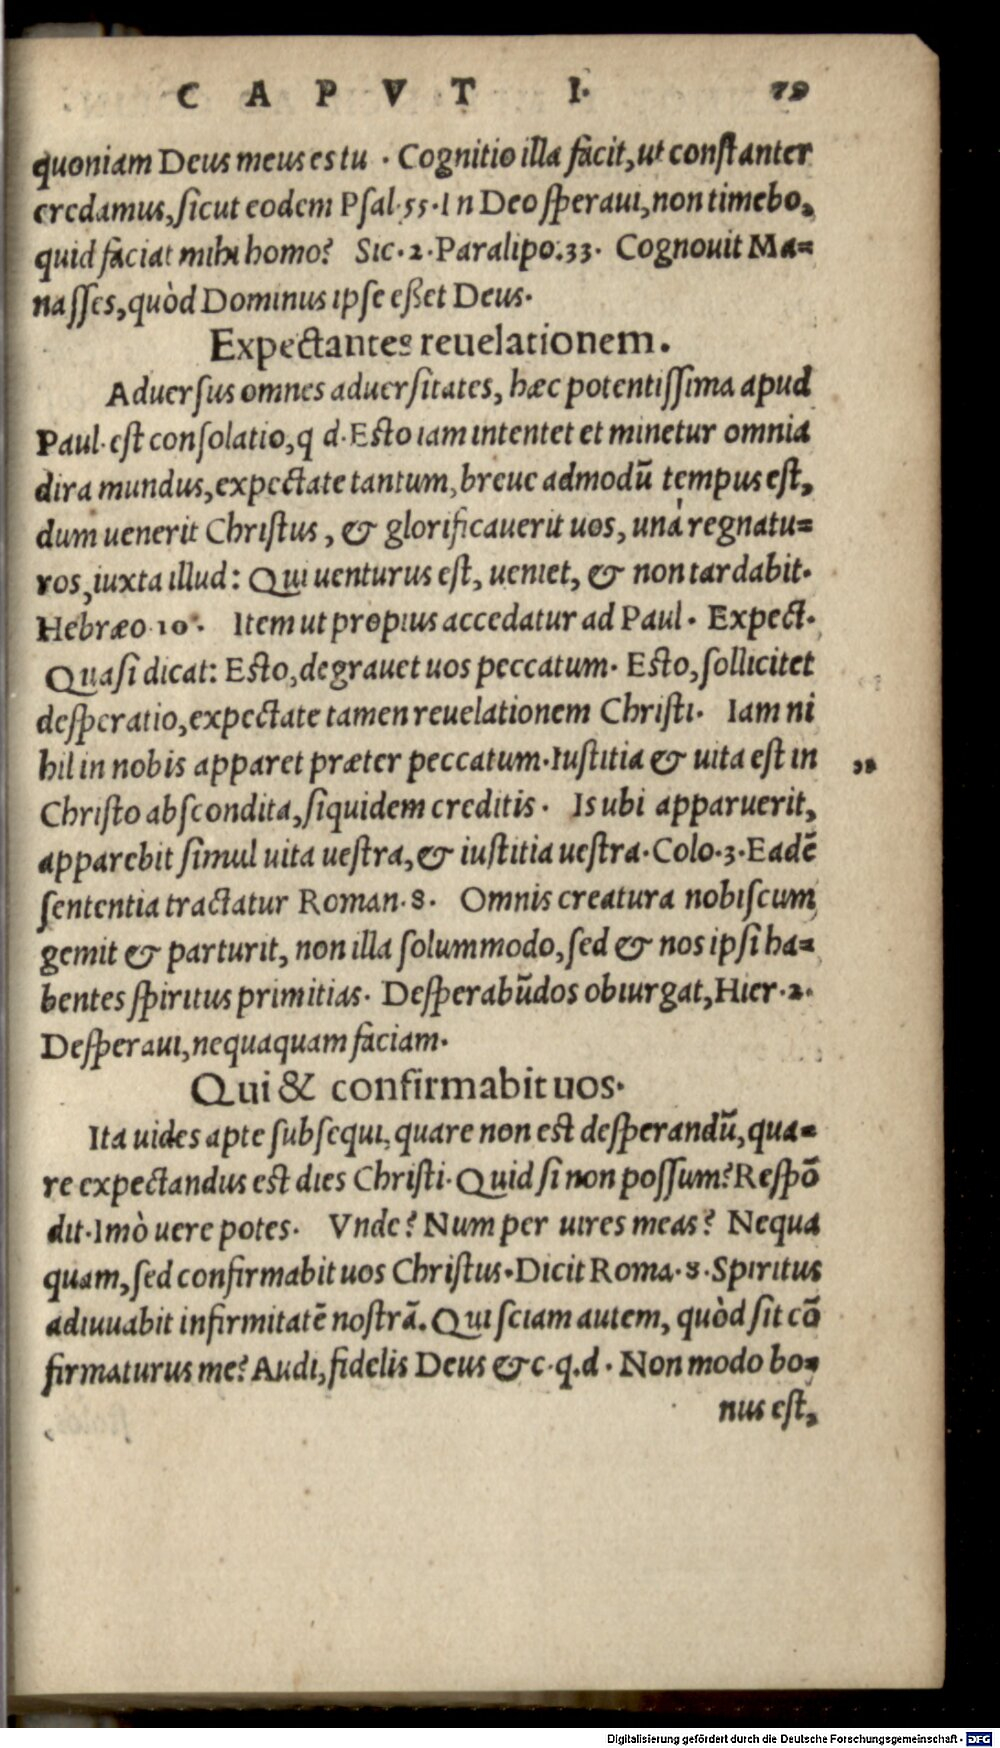 CAPVT I. 79
quoniam Deus meus es tu . Cognitio illa facit, ut constanter
credamus, sicut eodem Psal. 55. In Deo speraui, non timebo,
quid faciat mihi homo? Sic. 2. Paralipo. 33. Cognouit Ma=
nasses, quòd Dominus ipse eßet Deus.
Expectantes reuelationem.
Aduersus omnes aduersitates, hæc potentissima apud
Paul. est consolatio, q d. Esto iam intentet et minetur omnia
dira mundus, expectate tantum, breue admodū tempus est,
dum uenerit Christus, & glorificauerit uos, unà regnatu=
ros, iuxta illud: Qui uenturus est, ueniet, & non tardabit.
Hebræo. 10. Item ut propius accedatur ad Paul. Expect.
Quasi dicat: Esto, degrauet uos peccatum. Esto, sollicitet
desperatio, expectate tamen reuelationem Christi. Iam ni
hil in nobis apparet præter peccatum. Iustitia & uita est in
Christo abscondita, siquidem creditis. Is ubi apparuerit,
apparebit simul uita uestra, & iustitia uestra. Colo. 3. Eadē
sententia tractatur Roman. 8. Omnis creatura nobiscum
gemit & parturit, non illa solummodo, sed & nos ipsi ha=
bentes spiritus primitias. Desperabūdos obiurgat, Hier. 2.
Desperaui, nequaquam faciam.
Qui & confirmabit uos.
Ita uides apte subsequi, quare non est desperandū, qua=
re expectandus est dies Christi. Quid si non possum? Respō
dit. Imò uere potes. Vnde? Num per uires meas? Nequa
quam, sed confirmabit uos Christus. Dicit Roma. 8. Spiritus
adiuuabit infirmitatē nostrā. Qui sciam autem, quòd sit cō
firmaturus me? Audi, fidelis Deus &c. q.d. Non modo bo=
nus est,
Digitalisierung gefördert durch die Deutsche Forschungsgemeinschaft - DFG